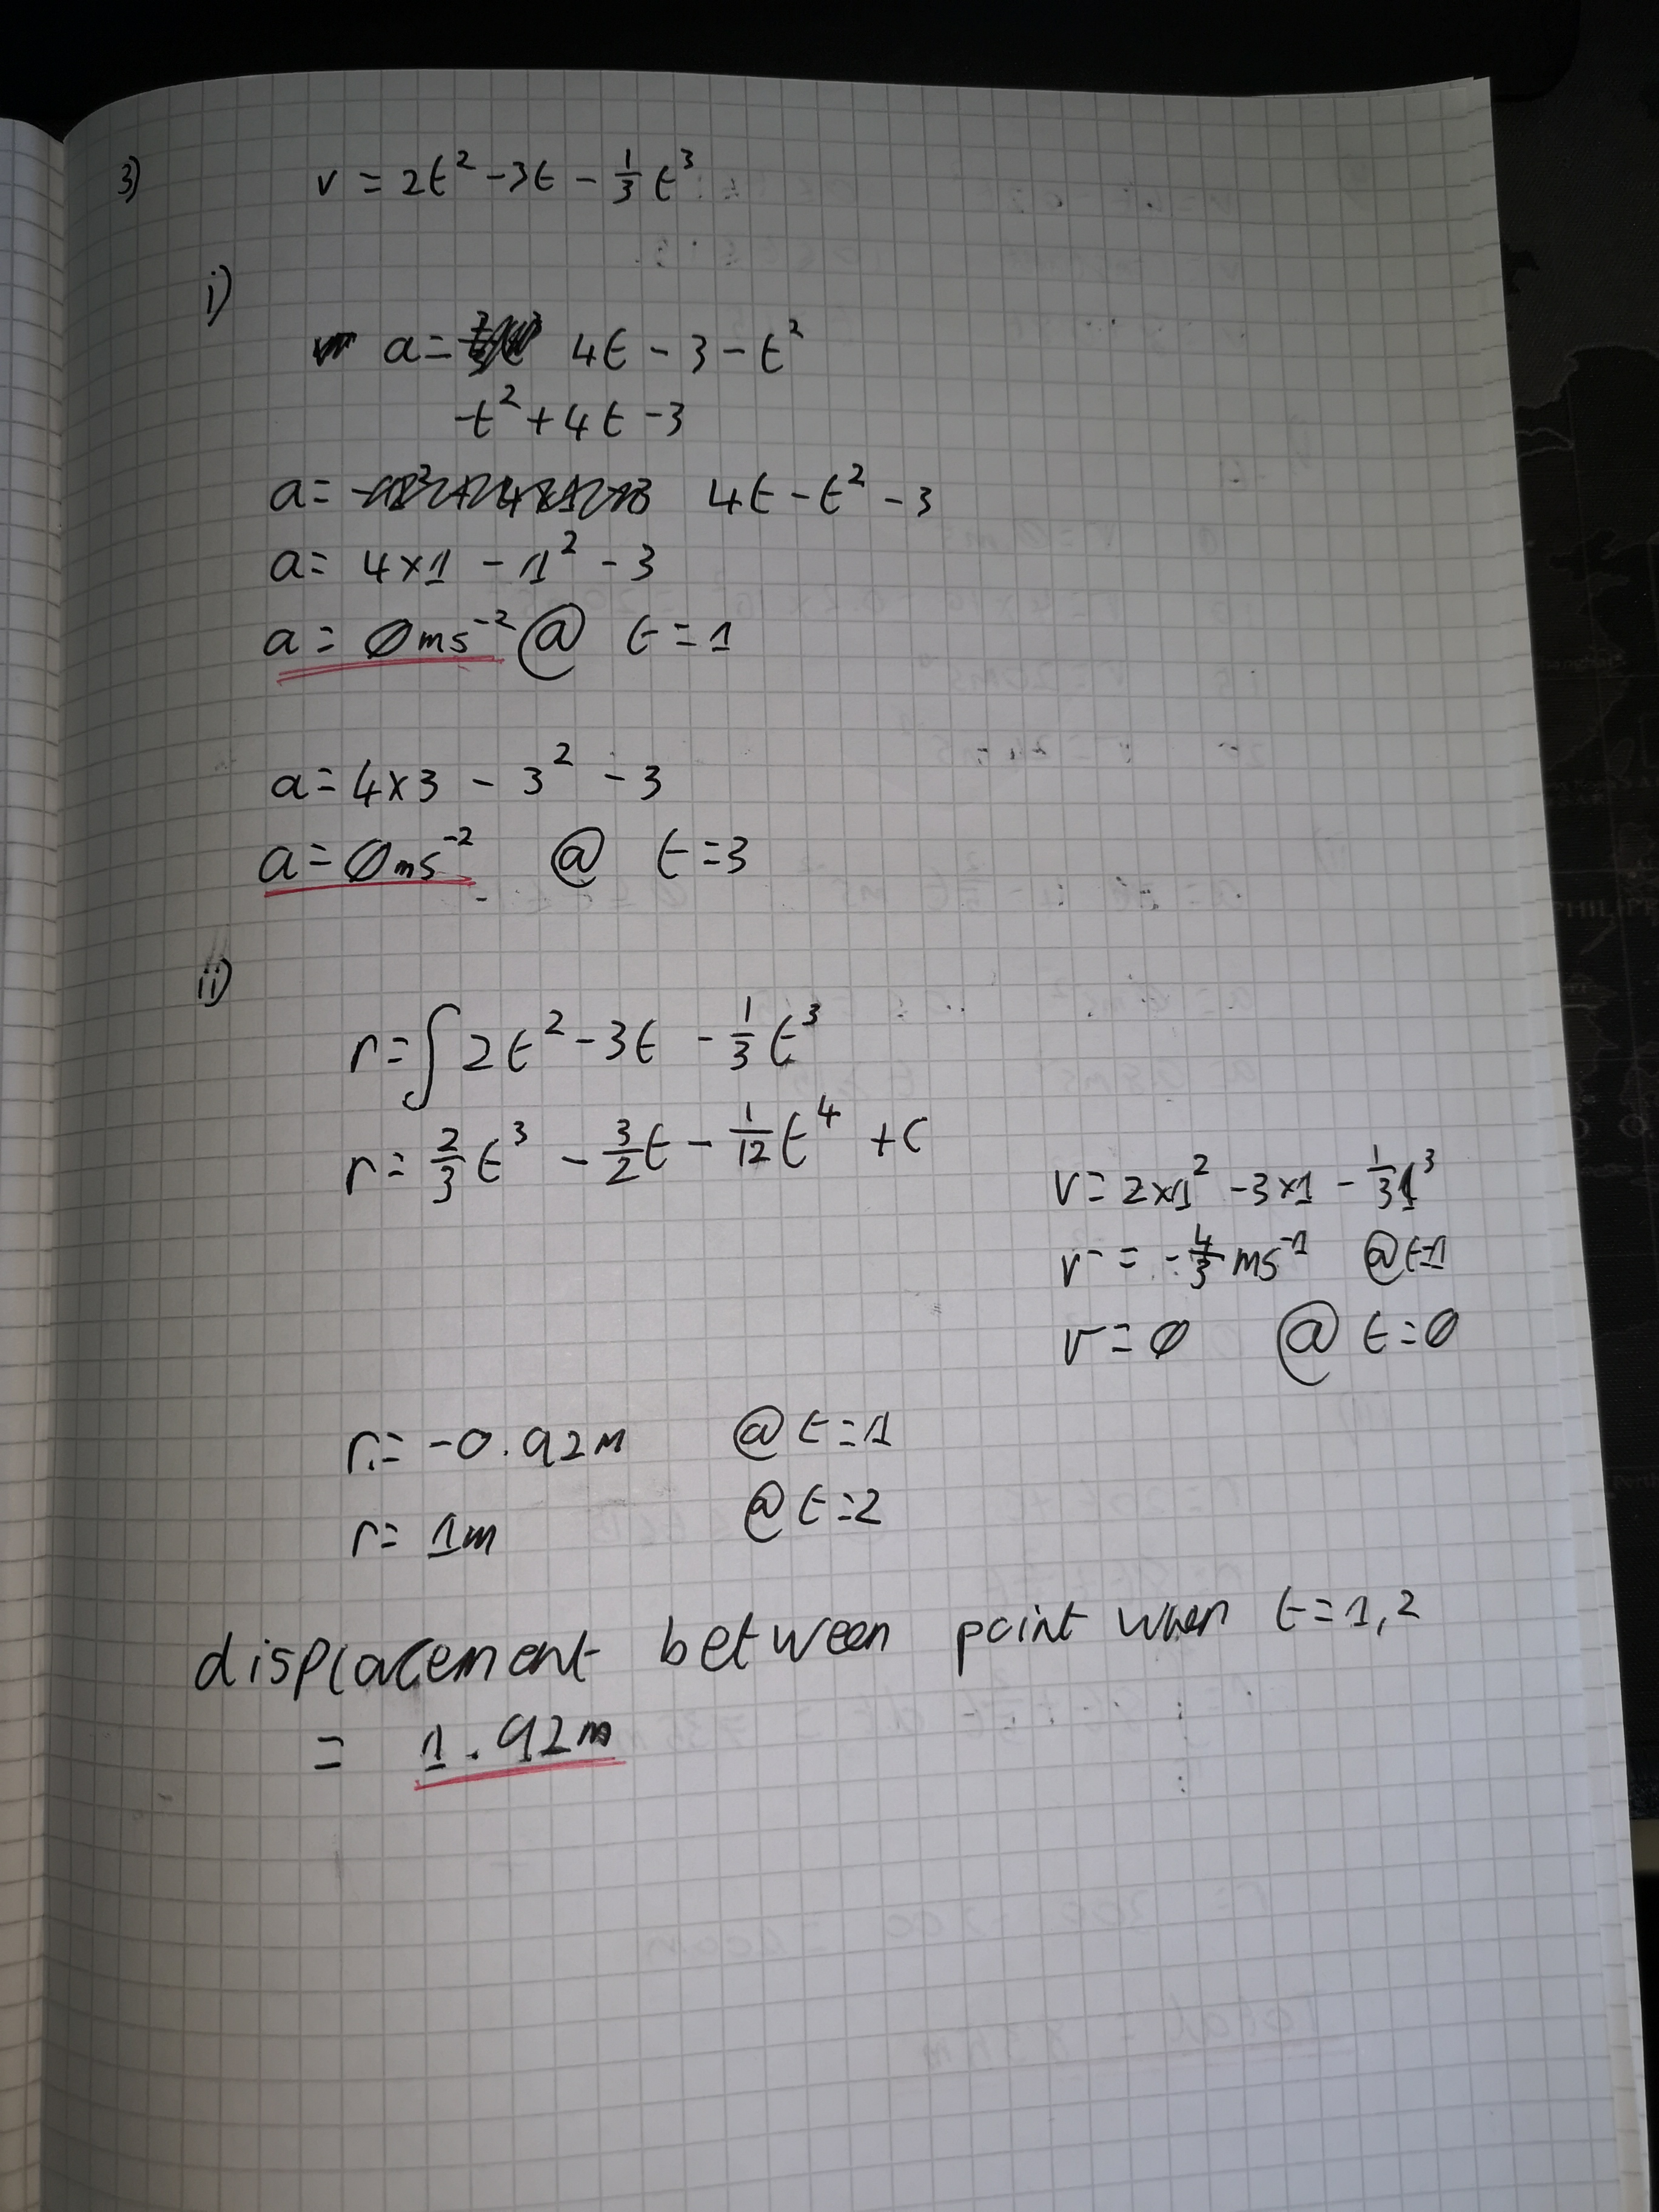 3) v = 2t² - 3t - 1/3 t³
i)
a = 4t - 3 - t²
-t² + 4t - 3
a = 4t - t² - 3
a = 4×1 - 1² - 3
a = 0ms⁻² @ t = 1
a = 4×3 - 3² - 3
a = 0ms⁻² @ t = 3
ii)
r = ∫ 2t² - 3t - 1/3 t³
r = 2/3 t³ - 3/2 t - 1/12 t⁴ + c
v = 2×1² - 3×1 - 1/3 1³
v = -4/3 ms⁻¹ @ t=1
v = 0 @ t = 0
r = -0.92m @ t = 1
r = 1m @ t = 2
displacement between point when t = 1, 2
= 1.92m